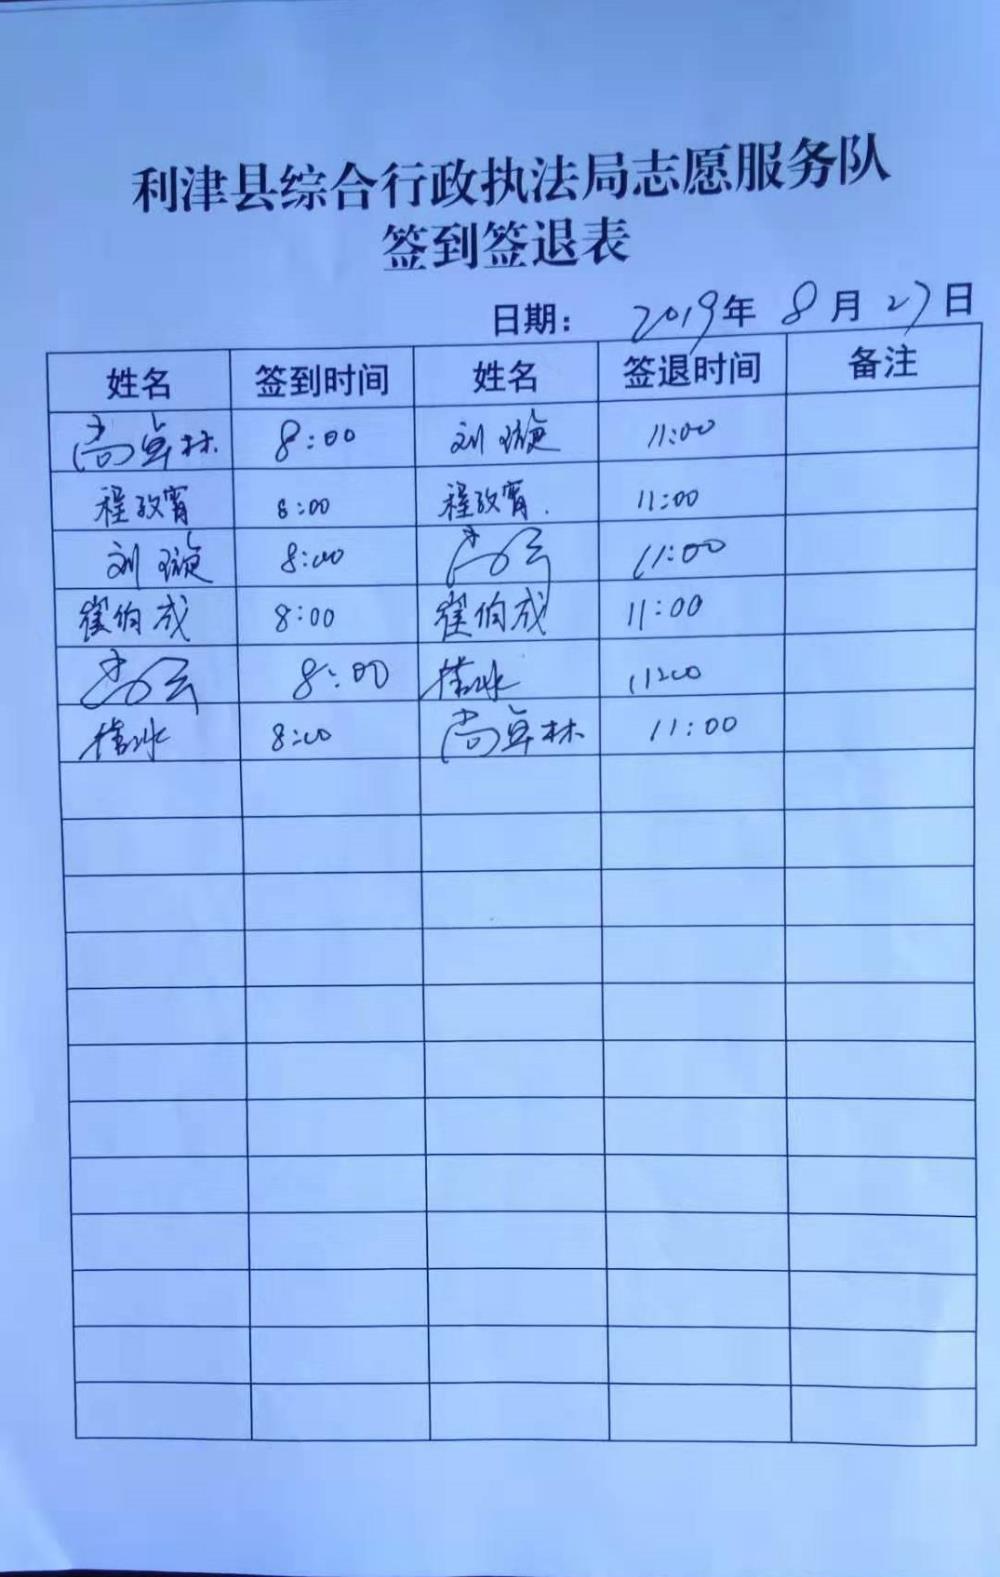 利津县综合行政执法局志愿服务队
签到签退表
日期： 2019年 8月 27日
姓名 签到时间 姓名 签退时间 备注
尚卓林 8:00 刘璇 11:00
程致霄 8:00 程致霄 11:00
刘璇 8:00 11:00
崔伯成 8:00 崔伯成 11:00
8:00 11:00
8:00 尚卓林 11:00